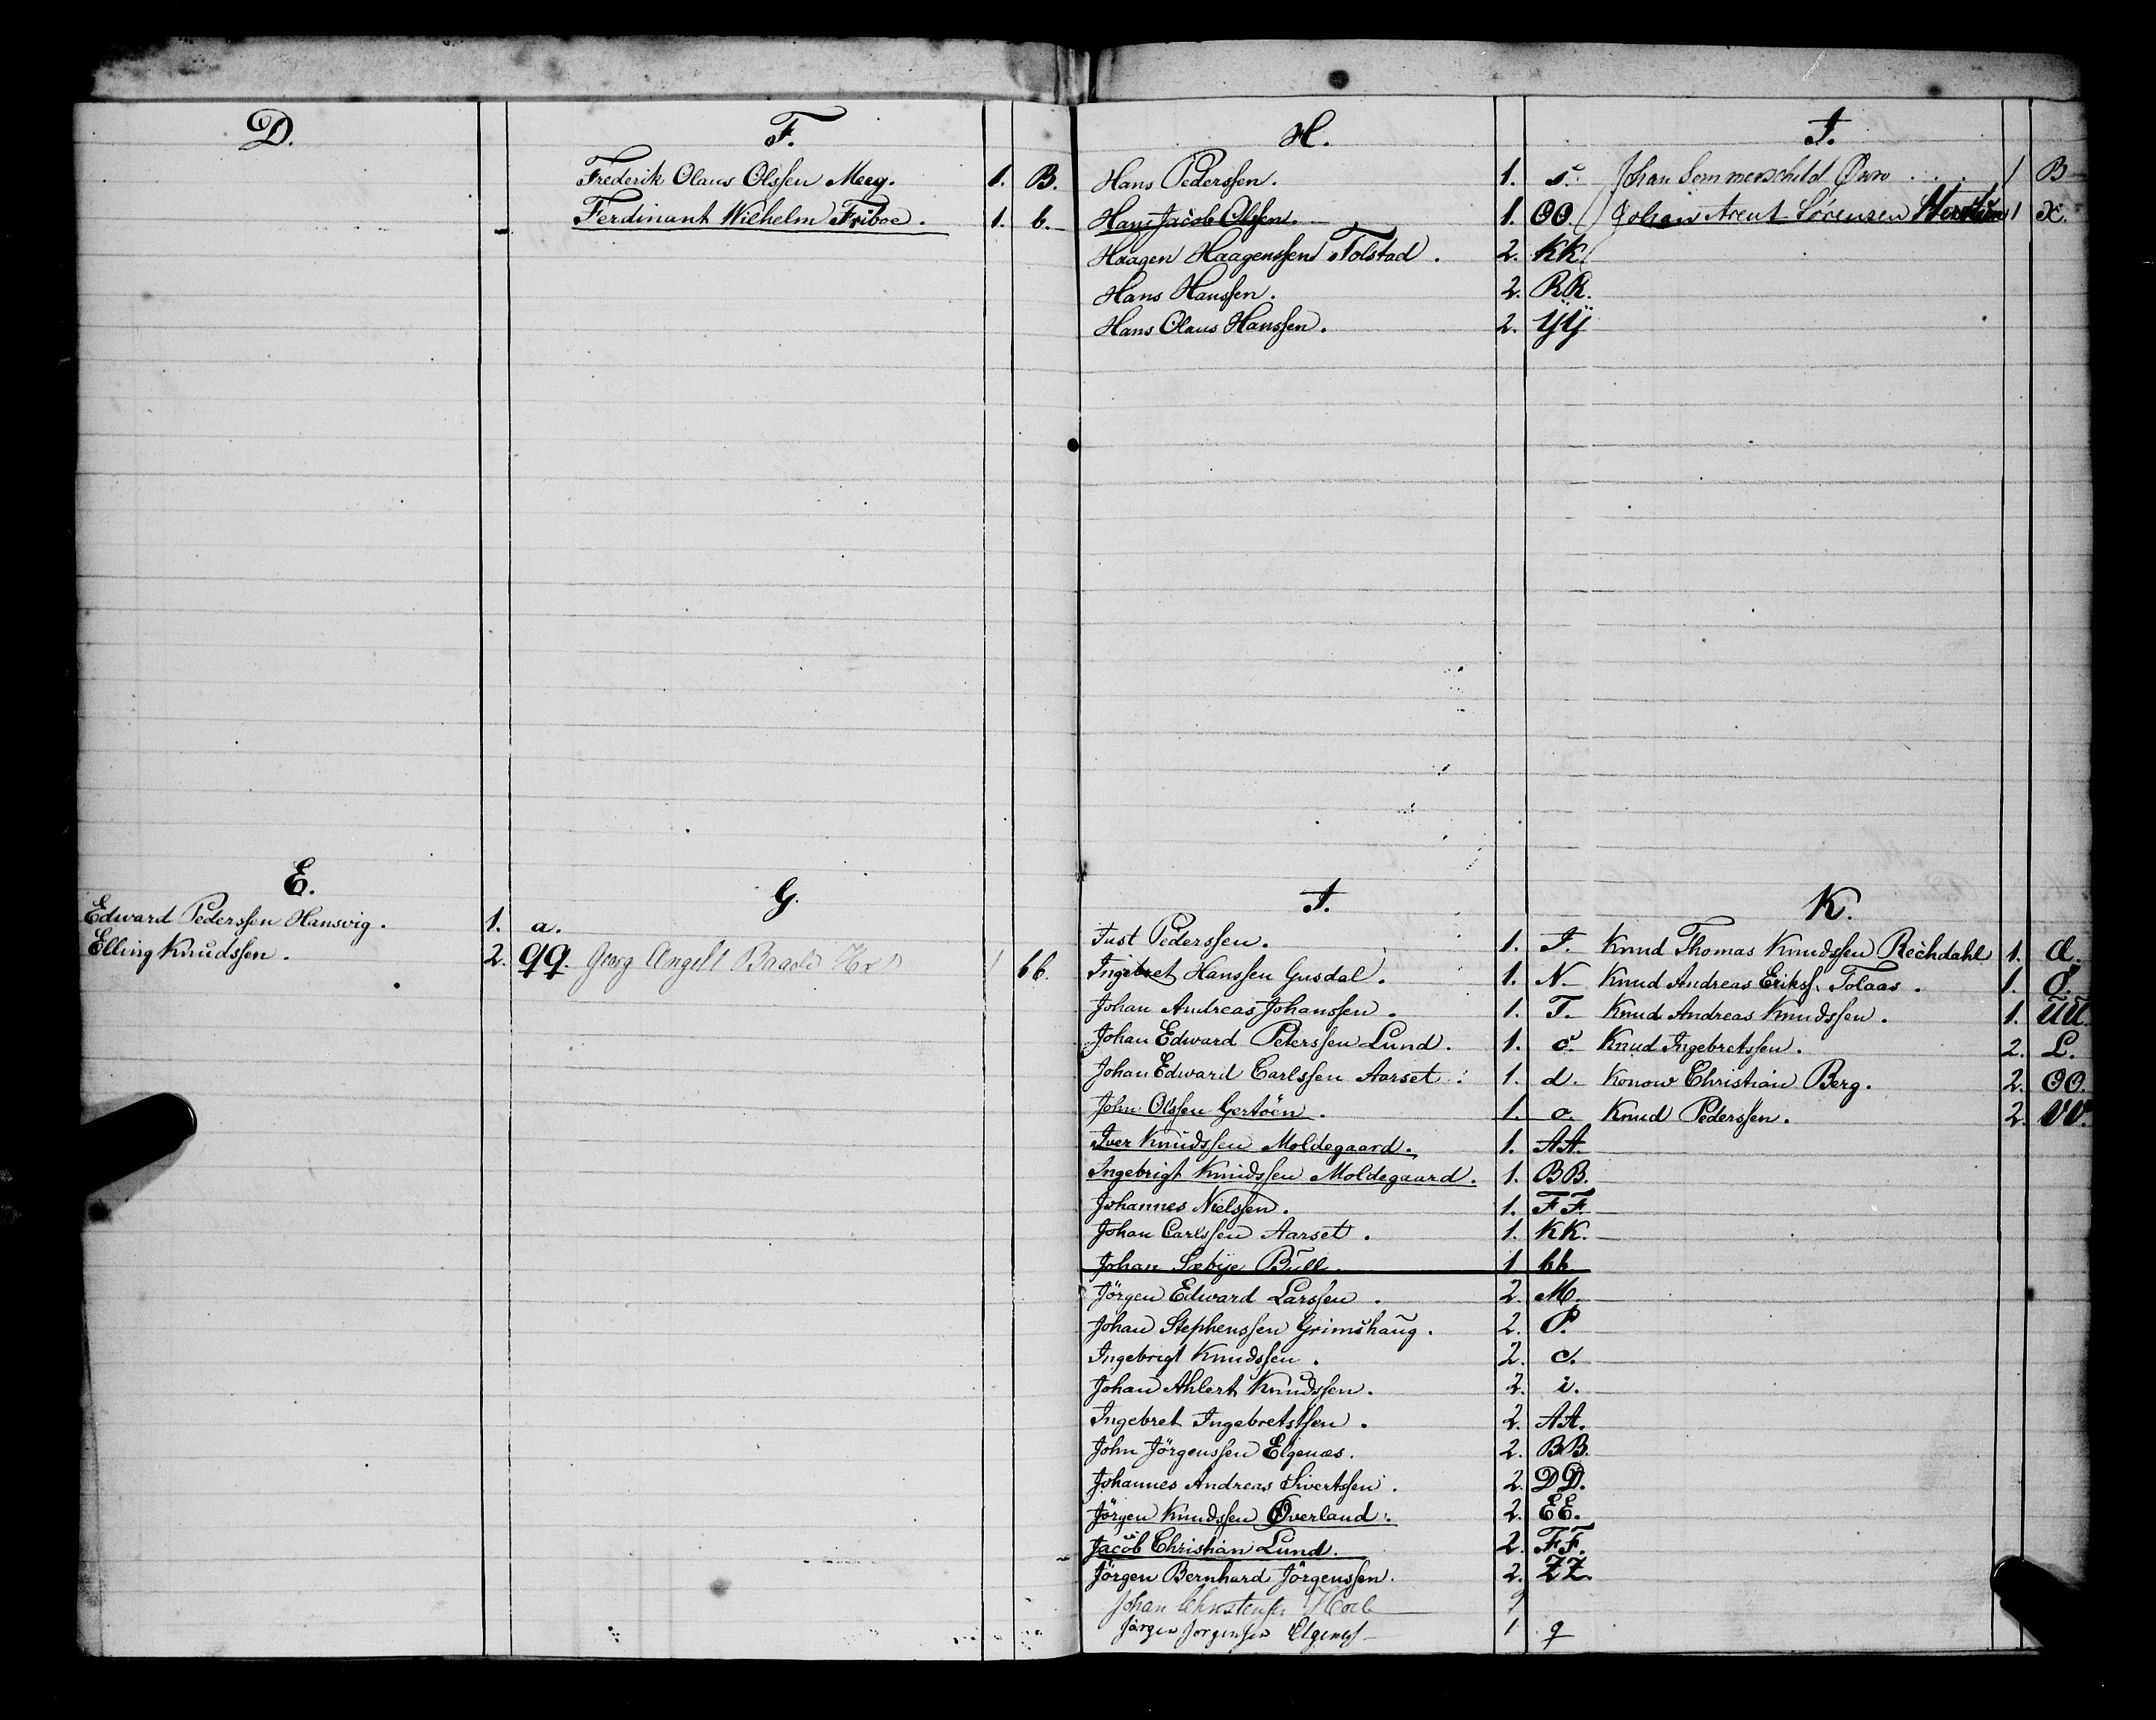 D.
E.
Edward Pederssen Hansvig. 1. a.
Elling Knudssen. 2. qq.
F.
Frederik Olaus Olssen Meeg. 1. B.
Ferdinant Wilhelm Friboe. 1. b.
G.
Georg Angell 1 bb.
H.
Hans Pederssen. 1. s.
Hans Jacob Olssen. 1. OO.
Haagen Haagenssen Tolstad. 2. KK
Hans Hanssen. 2. RR.
Hans Olaus Hanssen. 2. ÿÿ
I.
Just Pederssen. 1. I.
Ingebret Hanssen Gusdal. 1. N.
Johan Andreas Johanssen. 1. T.
Johan Edward Peterssen Lund. 1. c.
Johan Edward Carlssen Aarset. 1. d.
John Olssen Gertöen. 1. o.
Iver Knudssen Moldegaard. 1. AA.
Ingebrigt Knudssen Moldegaard. 1. BB.
Johannes Nielssen. 1. FF.
Johan Carlssen Aarset. 1. KK.
Johan Sæbye Bull. 1 bb
Jörgen Edward Larssen. 2. M.
Johan Stephenssen Grimshaug. 2. P.
Ingebrigt Knudssen. 2. c.
Johan Ahlert Knudssen. 2. i.
Ingebret Ingebretssen. 2. AA.
John Jörgenssen Elgenæs. 2. BB.
Johannes Andreas Sivertssen. 2. DD.
Jörgen Knudssen Overland. 2. EE.
Jacob Christian Lund. 2. FF.
Jörgen Bernhard Jörgenssen. 2. ZZ.
Johan Christenssen
Jörgen Jorgenssen 1 q
I.
Johan Sommerschild 1 B
Johan Arent Sörensen 1 X.
K.
Knud Thomas Knudssen Rechdahl 1. Q.
Knud Andreas Erikss. Tolaas. 1. O.
Knud Andreas Knudssen. 1. UU.
Knud Ingebretssen. 2. L.
Konow Christian Berg. 2. OO.
Knud Pederssen. 2. VV.